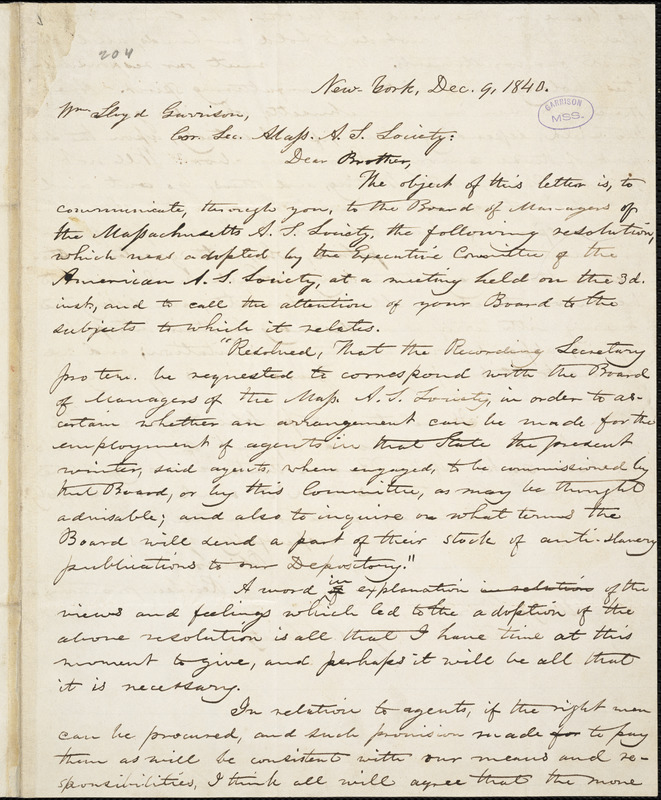 204
New-York, Dec. 9, 1840.
GARRISON
MSS.
Wm Lloyd Garrison,
Cor. Sec. Mass. A. S. Society:
Dear Brother,
The object of this letter is, to
communicate, through you, to the Board of Managers of
the Massachusetts A. S. Society, the following resolution,
which was adopted by the Executive Committee of the
American A. S. Society, at a meeting held on the 3d.
inst., and to call the attention of your Board to the
subjects to which it relates.
"Resolved, That the Recording Secretary
pro tem. be requested to correspond with the Board
of Managers of the Mass. A. S. Society, in order to as-
certain whether an arrangement can be made for the
employment of agents in that State the present
winter, said agents, when engaged, to be commissioned by
that Board, or by this Committee, as may be thought
advisable; and also to inquire on what terms the
Board will send a part of their stock of anti-slavery
publications to our Depository."
A word in explanation in relation of the
views and feelings which led to the adoption of the
above resolution is all that I have time at this
moment to give, and perhaps it will be all that
it is necessary.
In relation to agents, if the right men
can be procured, and such provision made for to pay
them as will be consistent with our means and re-
sponsibilities, I think all will agree that the more